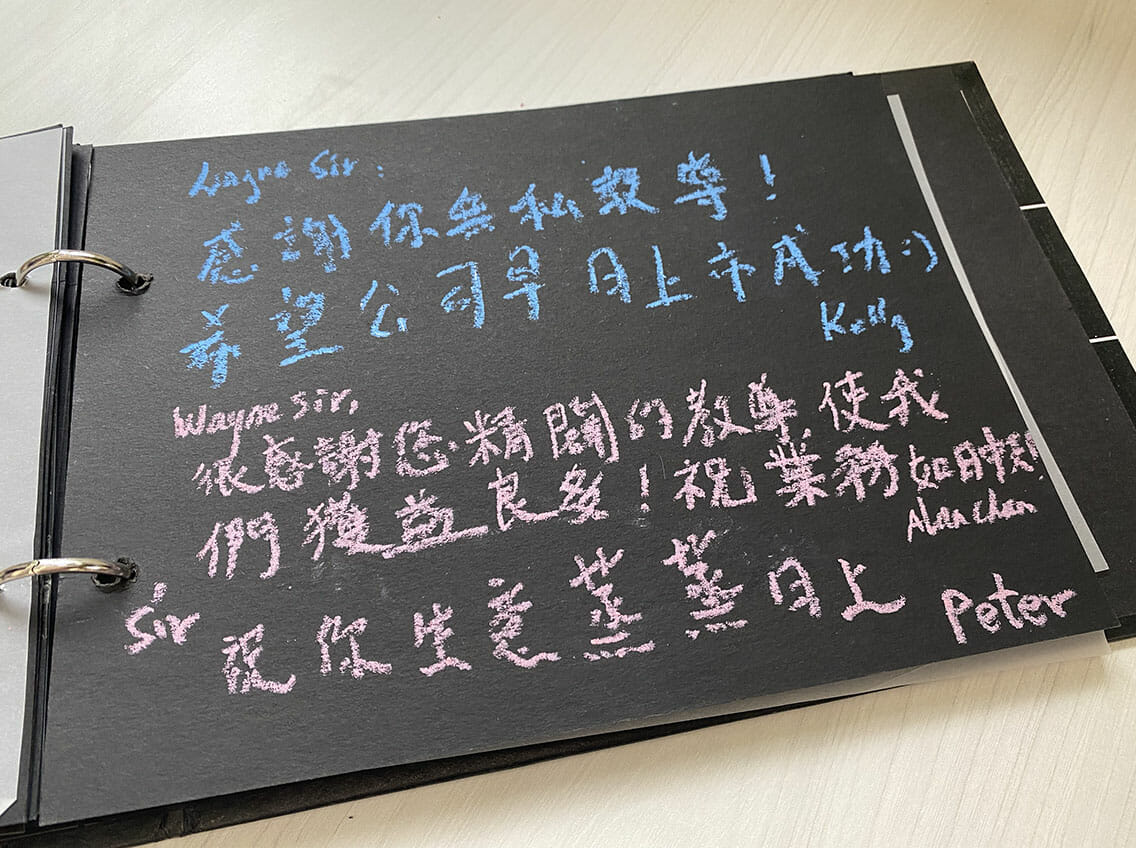 Wayne Sir:
感謝你無私教導！
希望公司早日上市成功:)
Kelly
Wayne Sir,
很感謝您精闢的教導,使我
們獲益良多！祝業務如日中天!
Alan Chan
Sir 祝你生意蒸蒸日上 Peter